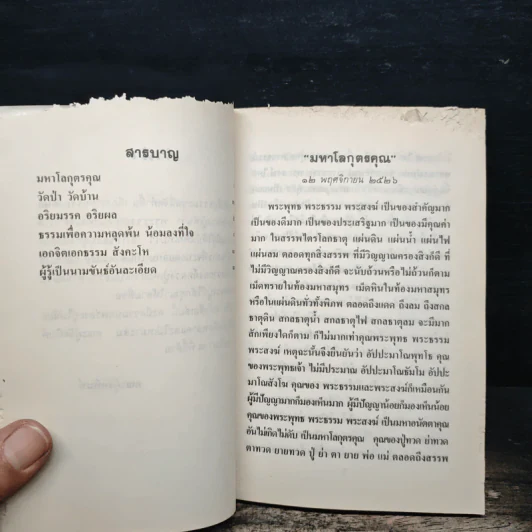 สารบาญ
มหาโลกุตรคุณ
วัดป่า วัดบ้าน
อริยมรรค อริยผล
ธรรมเพื่อความหลุดพ้น น้อมลงที่ใจ
เอกจิตเอกธรรม สังคะโห
ผู้รู้เป็นนามขันธ์อันละเอียด
"มหาโลกุตรคุณ"
๑๒ พฤศจิกายน ๒๕๒๖
พระพุทธ พระธรรม พระสงฆ์ เป็นของสำคัญมาก
เป็นของดีมาก เป็นของประเสริฐมาก เป็นของมีคุณค่า
มาก ในสรรพไตรโลกธาตุ แผ่นดิน แผ่นน้ำ แผ่นไฟ
แผ่นลม ตลอดทุกสิ่งสรรพ์ ที่มีวิญญาณครองสิงก็ดี ที่
ไม่มีวิญญาณครองสิงก็ดี จะนับล้วนหรือไม่ล้วนก็ตาม
เม็ดทรายในท้องมหาสมุทร เม็ดหินในท้องมหาสมุทร
หรือในแผ่นดินทั่วทั้งพิภพ ตลอดถึงแดด ถึงลม ถึงสกล
ธาตุดิน สกลธาตุน้ำ สกลธาตุไฟ สกลธาตุลม จะมีมาก
สักเพียงใดก็ตาม ก็ไม่มากเท่าคุณพระพุทธ พระธรรม
พระสงฆ์ เหตุฉะนั้นจึงยืนยันว่า อัปปะมาโณพุทโธ คุณ
ของพระพุทธเจ้า ไม่มีประมาณ อัปปะมาโณธัมโม อัปปะ
มาโณสังโฆ คุณของ พระธรรมและพระสงฆ์ก็เหมือนกัน
ผู้มีปัญญามากก็มองเห็นมาก ผู้มีปัญญาน้อยก็มองเห็นน้อย
คุณของพระพุทธ พระธรรม พระสงฆ์ เป็นมหาอนัตตาคุณ
อันไม่เกิดไม่ดับ เป็นมหาโลกุตรคุณ คุณของปู่ทวด ย่าทวด
ตาทวด ยายทวด ปู่ ย่า ตา ยาย พ่อ แม่ ตลอดถึงสรรพ